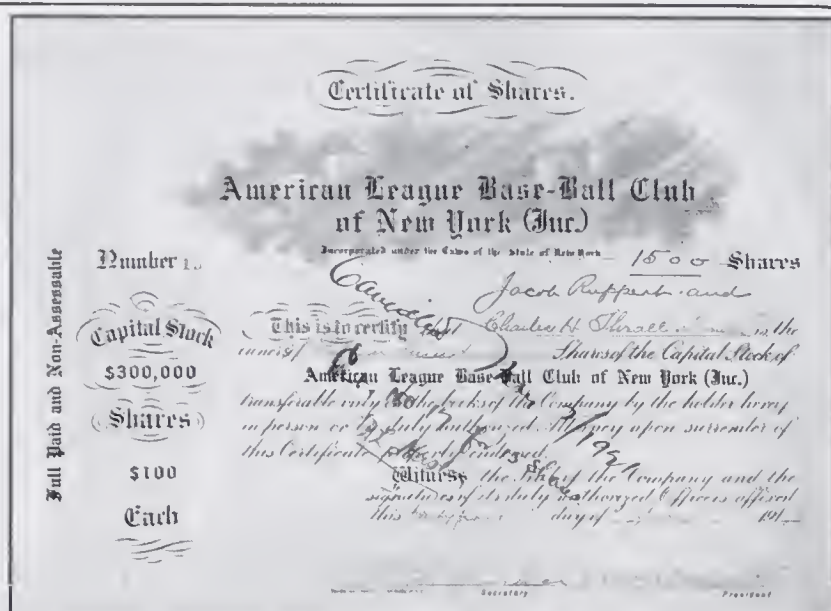 Certificate of Shares.
American League Base-Ball Club
of New York (Inc.)
Incorporated under the Laws of the State of New York
Number
1500 Shares
Full Paid and Non-Assessable
Capital Stock
$300,000
Shares
$100
Each
Jacob Ruppert and
This is to certify that Charles H Thrall is the
owner of Shares of the Capital Stock of
American League Base-Ball Club of New York (Inc.)
transferable only on the books of the Company by the holder hereof
in person or by duly authorized Attorney upon surrender of
this Certificate properly endorsed.
Witness the Seal of the Company and the
signatures of its duly authorized Officers affixed
this day of 191
Cancelled
Secretary
President